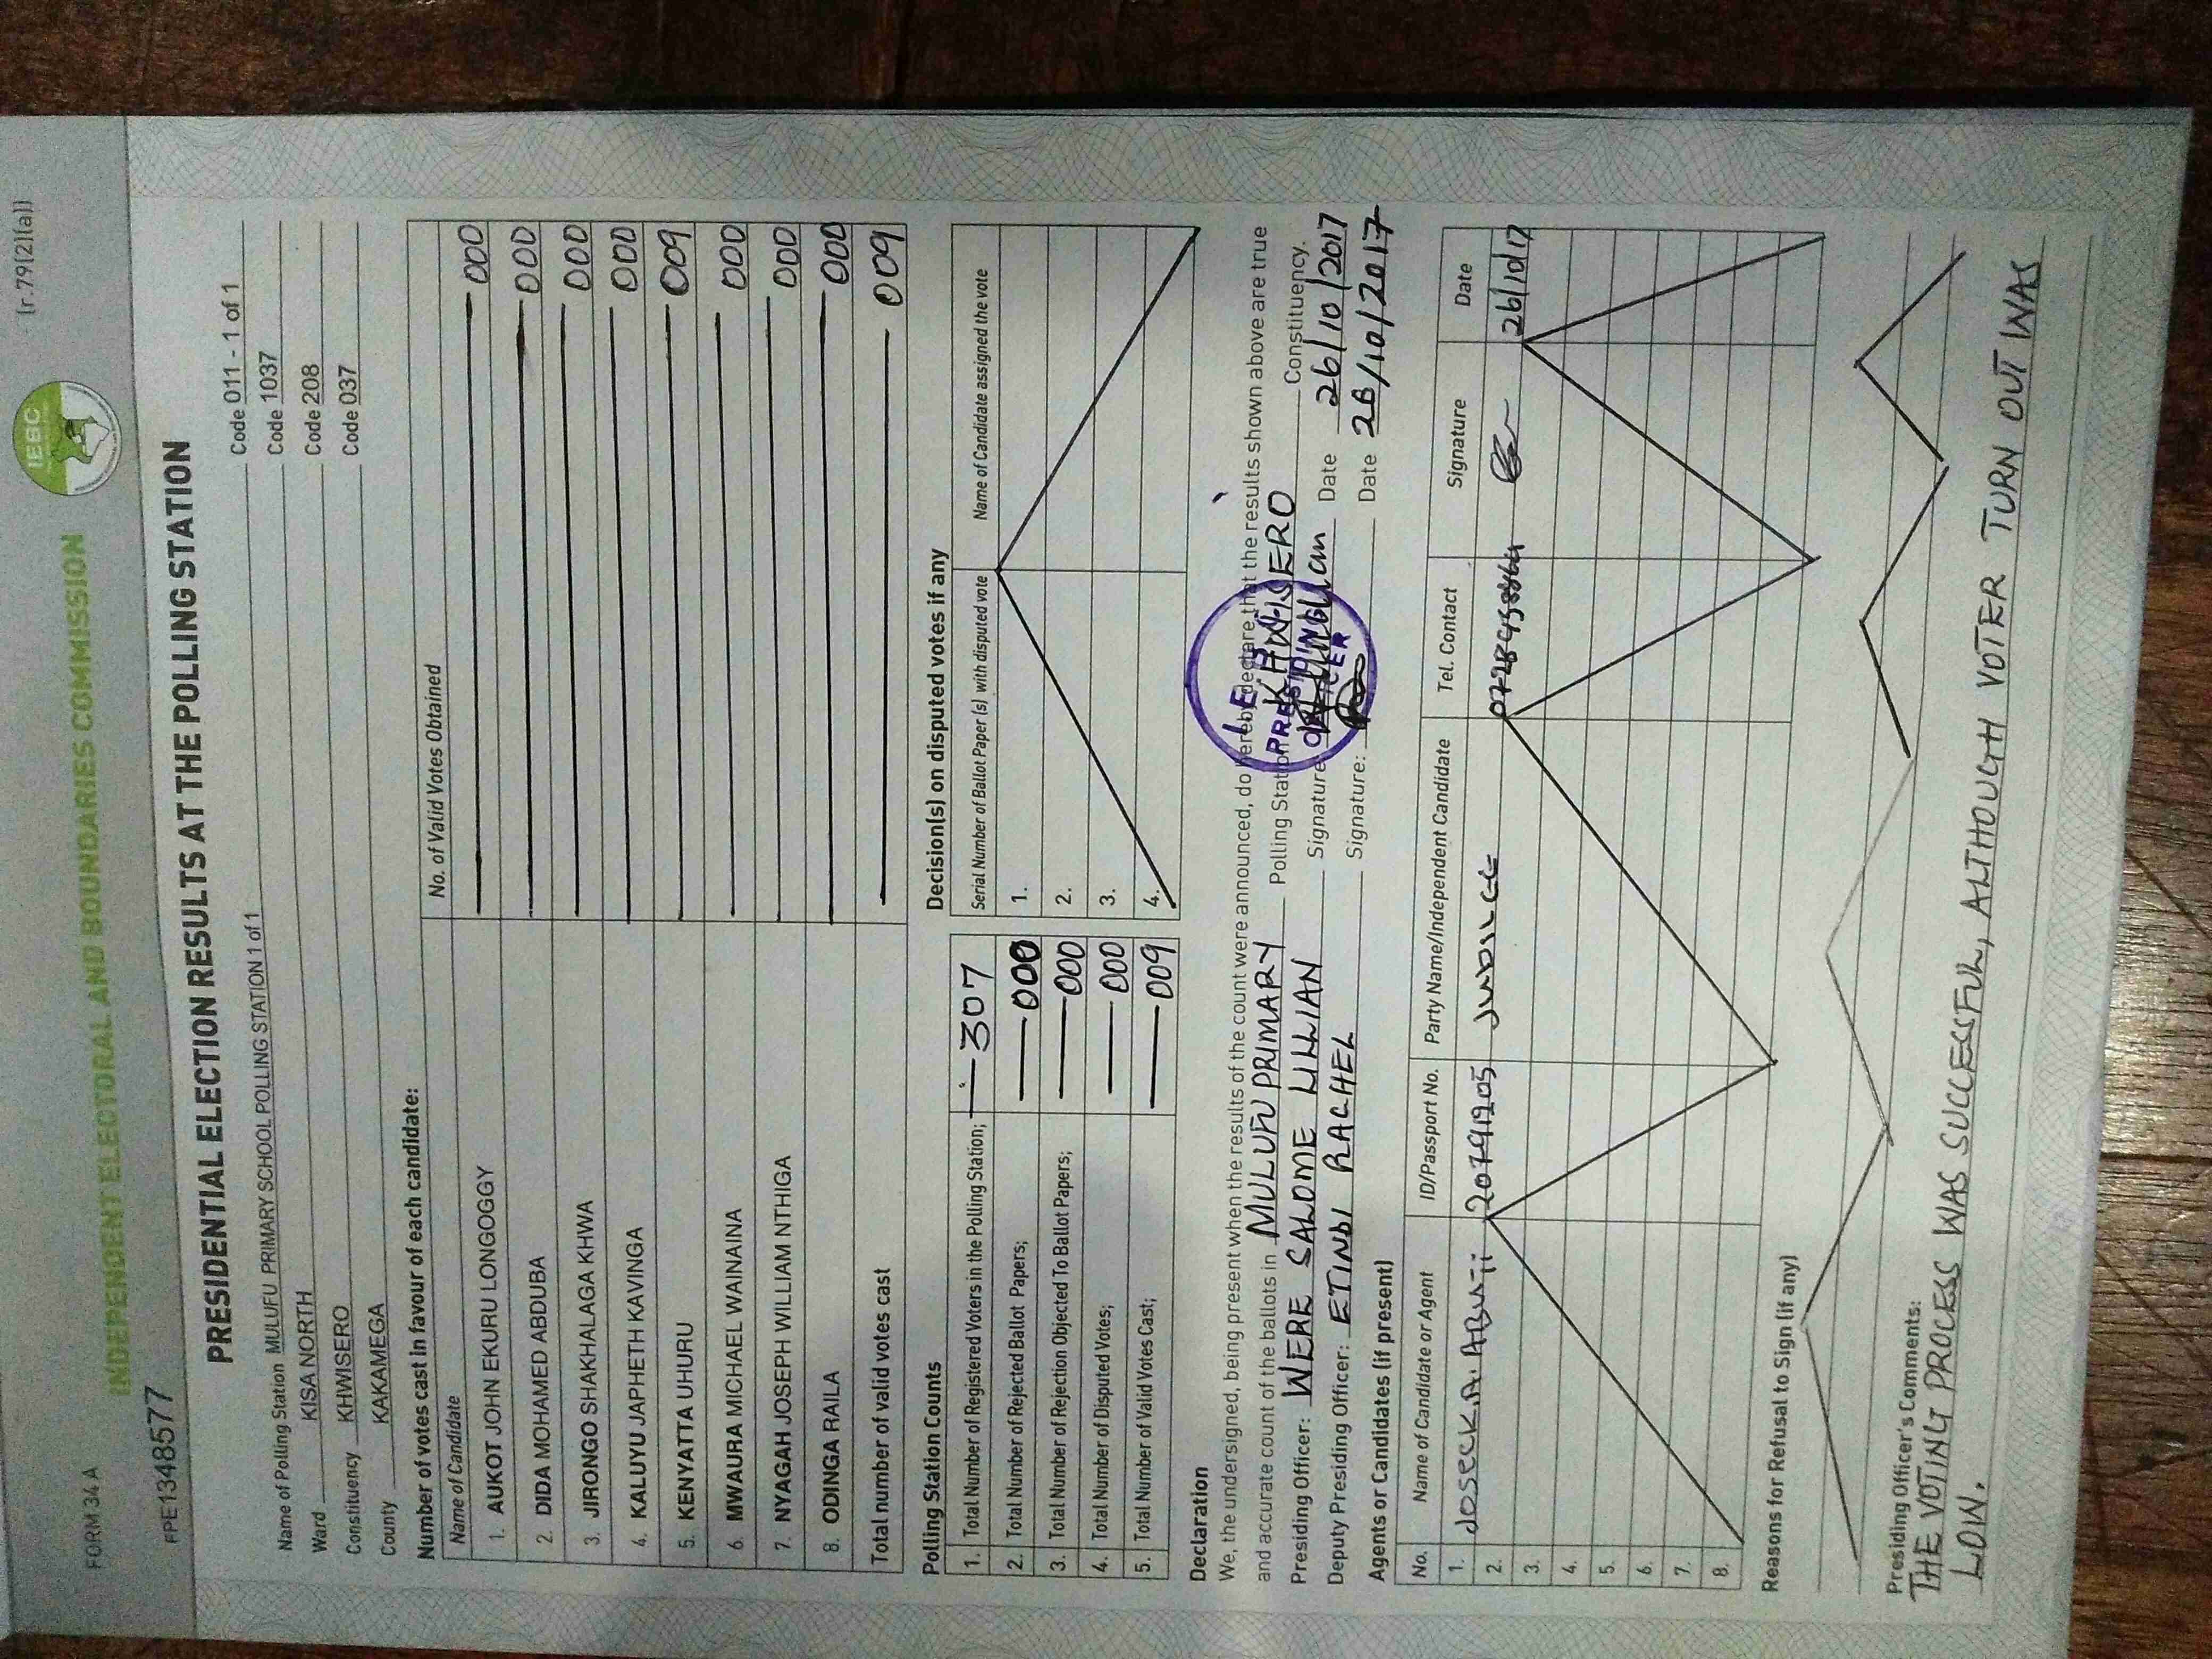 FORM 34 A
(r.79(2)(a))
INDEPENDENT ELECTORAL AND BOUNDARIES COMMISSION
IEBC
FPE1348577
PRESIDENTIAL ELECTION RESULTS AT THE POLLING STATION
Name of Polling Station MULUFU PRIMARY SCHOOL POLLING STATION 1 of 1 Code 011 - 1 of 1
Ward KISA NORTH Code 1037
Constituency KHWISERO Code 208
County KAKAMEGA Code 037
Number of votes cast in favour of each candidate:
Name of Candidate No. of Valid Votes Obtained
1. AUKOT JOHN EKURU LONGOGGY 000
2. DIDA MOHAMED ABDUBA 000
3. JIRONGO SHAKHALAGA KHWA 000
4. KALUYU JAPHETH KAVINGA 000
5. KENYATTA UHURU 009
6. MWAURA MICHAEL WAINAINA 000
7. NYAGAH JOSEPH WILLIAM NTHIGA 000
8. ODINGA RAILA 000
Total number of valid votes cast 009
Polling Station Counts
1. Total Number of Registered Voters in the Polling Station; 307
2. Total Number of Rejected Ballot Papers; 000
3. Total Number of Rejection Objected To Ballot Papers; 000
4. Total Number of Disputed Votes; 000
5. Total Number of Valid Votes Cast; 009
Decision(s) on disputed votes if any
Serial Number of Ballot Paper (s) with disputed vote Name of Candidate assigned the vote
1.
2.
3.
4.
Declaration
We, the undersigned, being present when the results of the count were announced, do hereby declare that the results shown above are true
and accurate count of the ballots in MULUFU PRIMARY Polling Station KHWISERO Constituency.
Presiding Officer: WERE SALOME LILLIAN Signature: Date 26/10/2017
Deputy Presiding Officer: ETINDI RACHEL Signature: Date 26/10/2017
PRESIDING
OFFICER
Agents or Candidates (if present)
No. Name of Candidate or Agent ID/Passport No. Party Name/Independent Candidate Tel. Contact Signature Date
1. JOSECK.A. 20791205 JUBILEE 26/10/17
2.
3.
4.
5.
6.
7.
8.
Reasons for Refusal to Sign (if any)
Presiding Officer's Comments:
THE VOTING PROCESS WAS SUCCESSFUL, ALTHOUGH VOTER TURN OUT WAS
LOW.